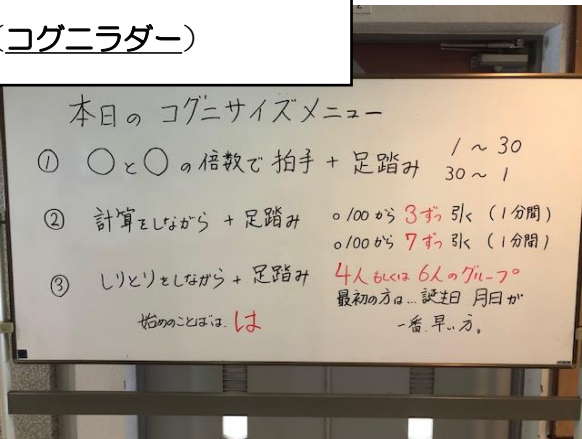 （コグニラダー）
本日の コグニサイズメニュー
① ○と○の倍数で 拍手 + 足踏み 1～30
30～1
② 計算をしながら + 足踏み ○100から 3ずつ 引く（1分間）
○100から 7ずつ 引く（1分間）
③ しりとりをしながら + 足踏み 4人もしくは 6人のグループ。
最初の方は…誕生日 月日が
始めのことばは、は 一番早い方。